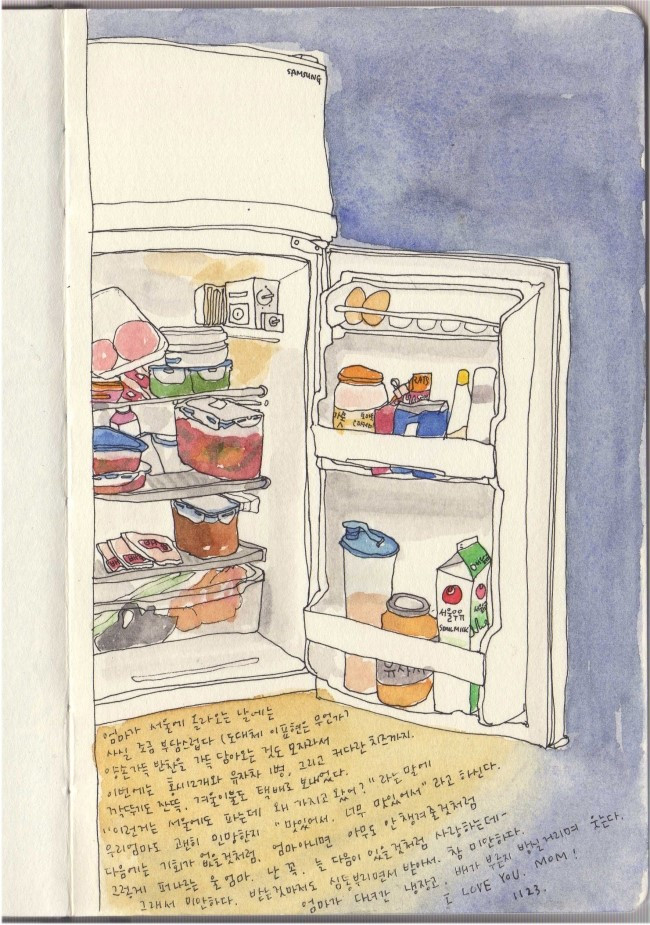 SAMSUNG
서울우유
SEOUL MILK
유자차
엄마가 서울에 올라오는 날에는
사실 조금 부담스럽다 (도대체 이 표현은 무언가)
양손가득 반찬을 가득 담아오는 것도 모자라서
이번에는 홍시 12개와 유자차 1병, 그리고 커다란 치즈까지.
깍뚜기도 잔뜩, 겨울이불도 택배로 보내왔다.
"이런거는 서울에도 파는데 왜 가지고 왔어?" 라는 말에
우리엄마도 괜히 민망한지 "맛있어서. 너무 맛있어서" 라고 하신다.
다음에는 기회가 없을것처럼, 엄마아니면 아무도 안 챙겨줄것처럼
그렇게 퍼나르는 울 엄마. 난 꼭, 늘 다음이 있을것처럼 사랑하는데-
그래서 미안하다. 받는것마저도 심통부리면서 받아서. 참 미안하다.
엄마가 다녀간 냉장고. 배가 부른지 방실거리며 웃는다.
I LOVE YOU. MOM!
11 23.